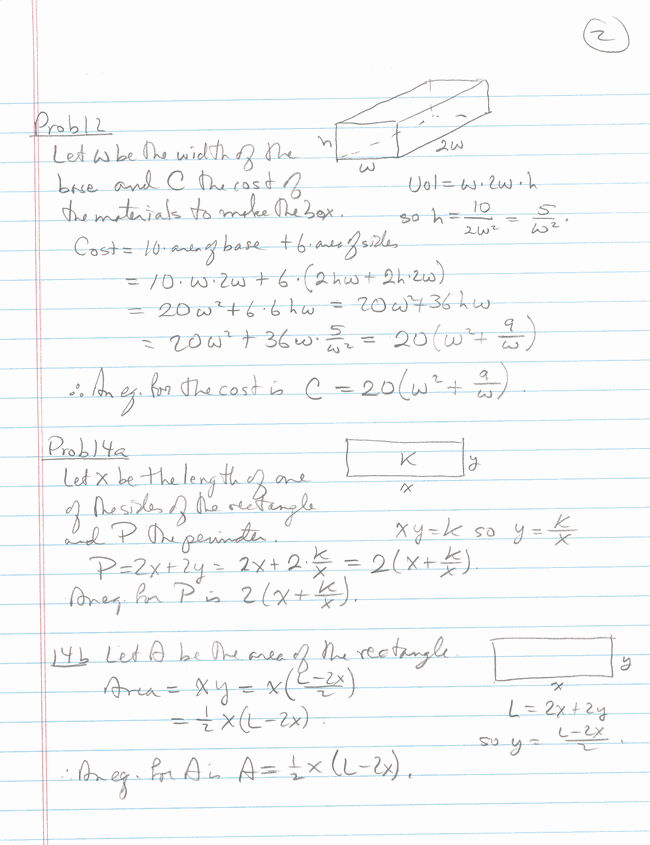 2
Prob 12
Let w be the width of the
base and C the cost of
the materials to make the box.
h
w
2w
Vol = w·2w·h
so h = 10/2w² = 5/w².
Cost = 10·area of base + 6·area of sides
= 10·w·2w + 6·(2hw + 2h·2w)
= 20w² + 6·6hw = 20w² + 36hw
= 20w² + 36w·5/w² = 20(w² + 9/w)
∴ An eq. for the cost is C = 20(w² + 9/w).
Prob 14a
Let x be the length of one
of the sides of the rectangle
and P the perimeter.
K
y
x
xy = k so y = k/x
P = 2x + 2y = 2x + 2·k/x = 2(x + k/x).
An eq. for P is 2(x + k/x).
14b Let A be the area of the rectangle.
Area = xy = x((L-2x)/2)
= 1/2 x(L-2x).
y
x
L = 2x + 2y
so y = (L-2x)/2.
∴ An eq. for A is A = 1/2 x(L-2x).